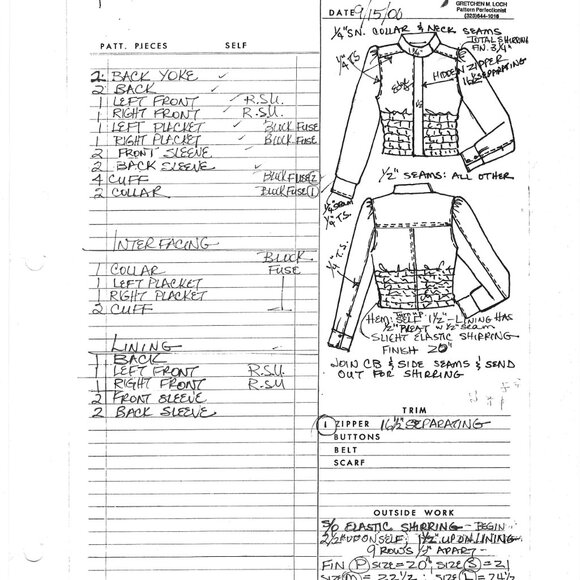 GRETCHEN M. LOCH
Pattern Perfectionist
(323)644-1016
DATE 9/15/00
PATT. PIECES SELF
2 BACK YOKE ✓
2 BACK ✓
1 LEFT FRONT ✓ R.S.U.
1 RIGHT FRONT ✓ R.S.U.
1 LEFT PLACKET ✓ BLOCK FUSE
1 RIGHT PLACKET ✓ BLOCK FUSE
2 FRONT SLEEVE ✓
2 BACK SLEEVE ✓
4 CUFF ✓ BLOCK FUSE 2
2 COLLAR BLOCK FUSE 1
INTERFACING
BLOCK
1 COLLAR FUSE
1 LEFT PLACKET
1 RIGHT PLACKET
2 CUFF
LINING
1 BACK
1 LEFT FRONT R.S.U.
1 RIGHT FRONT R.S.U
2 FRONT SLEEVE
2 BACK SLEEVE
1/4" SN. COLLAR & NECK SEAMS
TOTAL SHIRRING
FIN. 3 1/4"
1/2"
1/4 T.S.
1/4"
HIDDEN ZIPPER
16 1/2 SEPARATING
1/2" SEAMS: ALL OTHER
1/2" SEAM
1/4" T.S.
1/4" T.S.
HEM: SELF 1 1/2" - LINING HAS
1/2" PLEAT w 1/2" SEAM
SLIGHT ELASTIC SHIRRING
FINISH 20"
JOIN CB & SIDE SEAMS & SEND
OUT FOR SHIRRING
TRIM
1 ZIPPER 16 1/2" SEPARATING
BUTTONS
BELT
SCARF
OUTSIDE WORK
S/O ELASTIC SHIRRING - BEGIN
2 1/2" UP ON SELF, 1 1/2" UP ON LINING
9 ROWS 1/2" APART -
FIN P SIZE = 20" SIZE S = 21
SIZE M = 22 1/2 SIZE L = 24 1/2